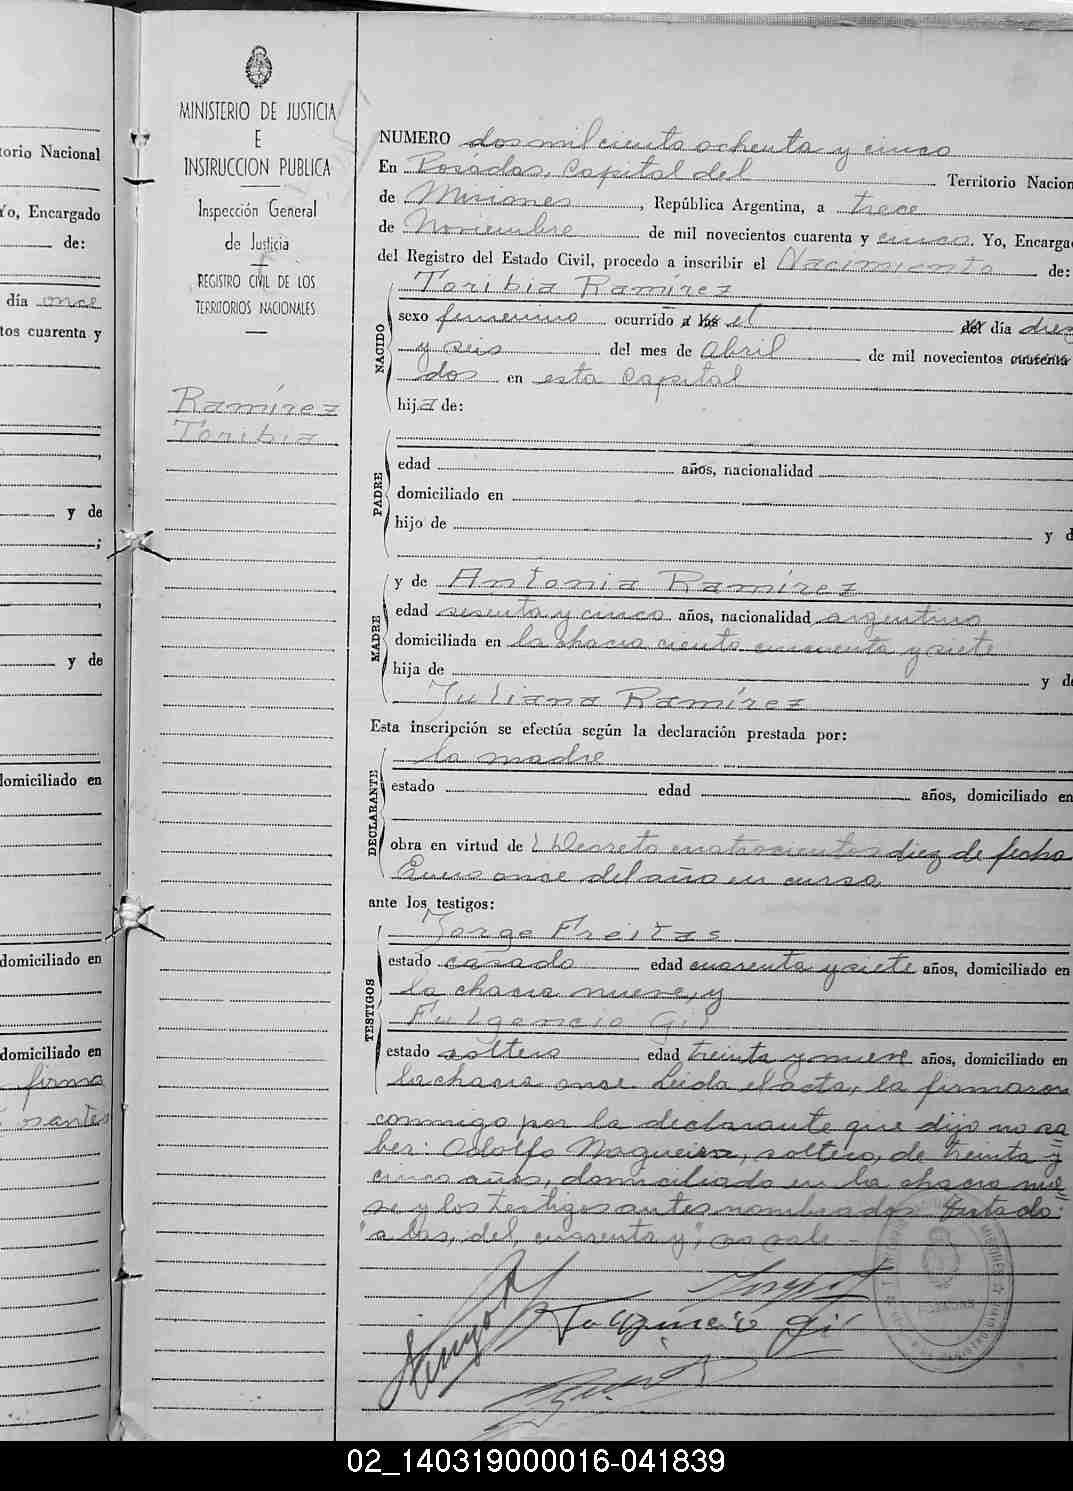 torio Nacional
Yo, Encargado
de:
día once
tos cuarenta y
y de
;
y de
domiciliado en
domiciliado en
domiciliado en
firma
MINISTERIO DE JUSTICIA
E
INSTRUCCION PUBLICA
Inspección General
de Justicia
REGISTRO CIVIL DE LOS
TERRITORIOS NACIONALES
Ramírez
Toribia
NUMERO dos mil ciento ochenta y cinco
En Posadas, Capital del Territorio Nacion
de Misiones, República Argentina, a trece
de Noviembre de mil novecientos cuarenta y cinco. Yo, Encarga
del Registro del Estado Civil, procedo a inscribir el Nacimiento de:
Toribia Ramírez
NACIDO
sexo femenino ocurrido a las el del día diez
y seis del mes de Abril de mil novecientos cuarenta
dos en esta Capital
hija de:
PADRE
edad años, nacionalidad
domiciliado en
hijo de y d
MADRE
y de Antonia Ramírez
edad sesenta y cinco años, nacionalidad argentina
domiciliada en la chacra ciento cincuenta y siete
hija de y d
Juliana Ramírez
Esta inscripción se efectúa según la declaración prestada por:
la madre
DECLARANTE
estado edad años, domiciliado en
obra en virtud de l Decreto cuatrocientos diez de fecha
Enero once del año en curso
ante los testigos:
Jorge Freitas
TESTIGOS
estado casado edad cuarenta y siete años, domiciliado en
la chacra nueve, y
Fulgencio Gil
estado soltero edad treinta y nueve años, domiciliado en
la chacra once. Leida el acta, la firmaron
conmigo por la declarante que dijo no sa=
ber: Adolfo Nogueira, soltero, de treinta y
cinco años, domiciliado en la chacra nue=
ve y los testigos antes nombrados. Testado:
"a las, del, cuarenta y", no vale -
POSADAS
02_140319000016-041839